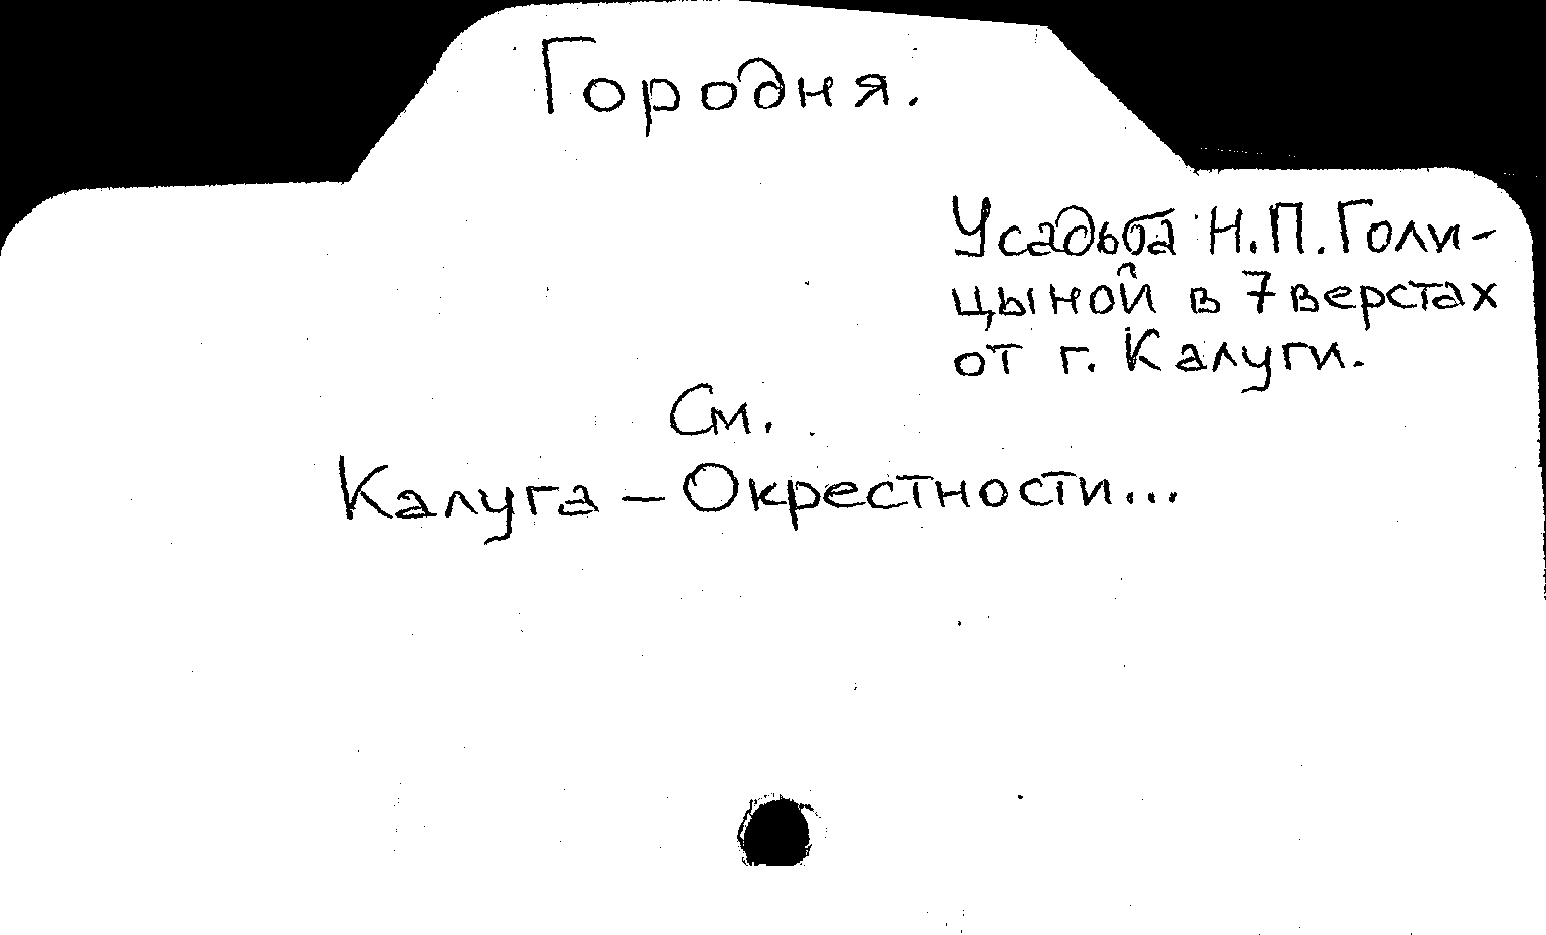 Городня.
Усадьба Н.П.Голи-
цыной в 7 верстах
от г. Калуги.
См.
Калуга – Окрестности...